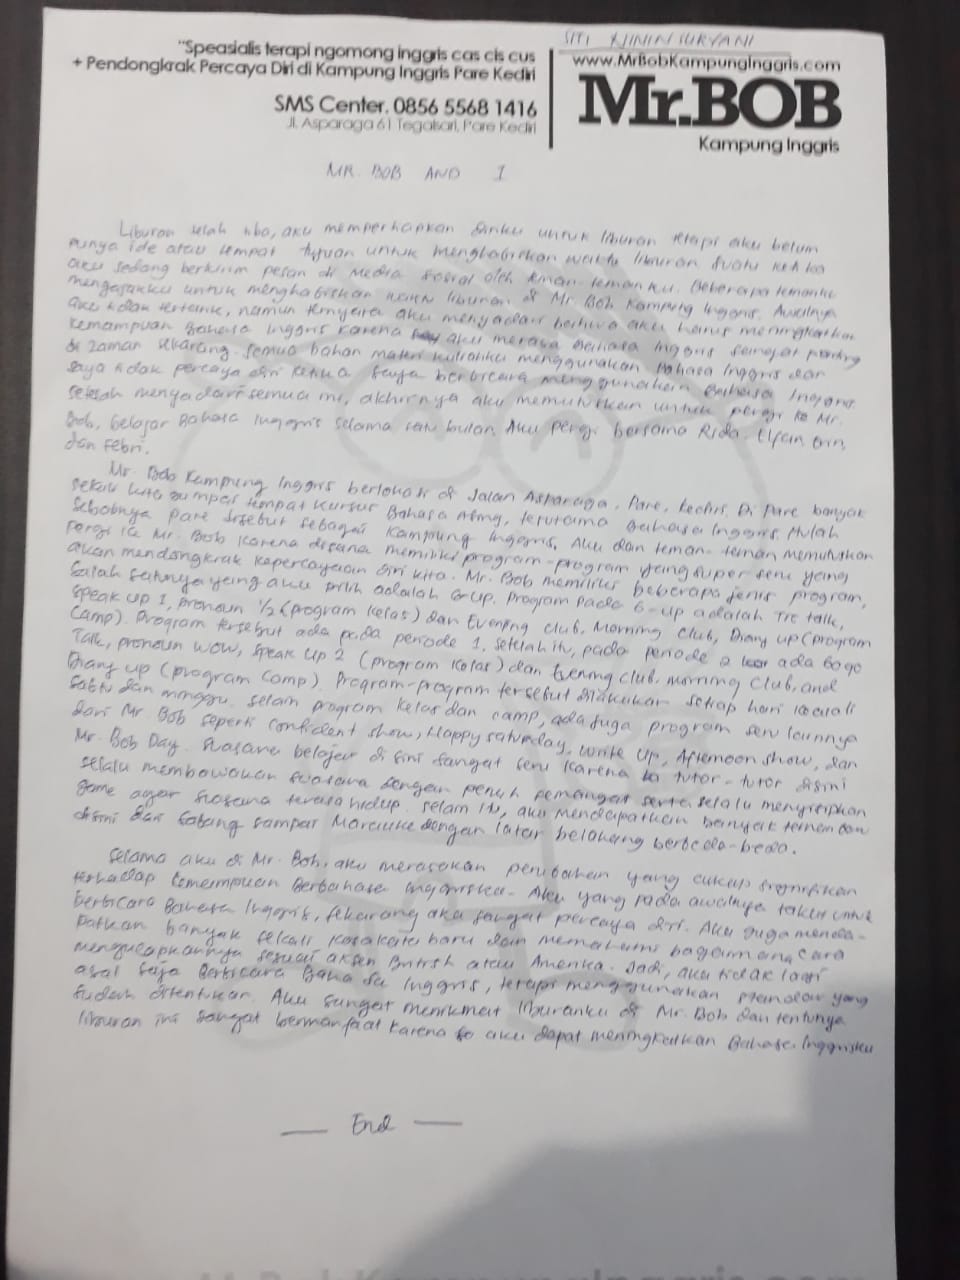 SITI NININ SURYANI
"Speasialis terapi ngomong inggris cas cis cus
+ Pendongkrak Percaya Diri di Kampung Inggris Pare Kediri
SMS Center. 0856 5568 1416
Jl. Asparaga 61 Tegalsari, Pare Kediri
www.MrBobKampungInggris.com
Mr.BOB
Kampung Inggris
MR. BOB AND I
Liburan telah tiba, aku mempersiapkan diriku untuk liburan tetapi aku belum
punya ide atau tempat tujuan untuk menghabiskan waktu liburan. Suatu ketika
aku sedang berkirim pesan di Media Sosial oleh teman-temanku. Beberapa temanku
mengajakku untuk menghabiskan waktu liburan di Mr. Bob Kampung Inggris. Awalnya
aku tidak tertarik, namun ternyata aku menyadari bahwa aku harus meningkatkan
kemampuan Bahasa Inggris karena aku merasa Bahasa Inggris sangat penting
di zaman sekarang. Semua bahan materi kuliahku menggunakan Bahasa Inggris dan
saya tidak percaya diri ketika saya berbicara menggunakan Bahasa Inggris.
Setelah menyadari semua ini, akhirnya aku memutuskan untuk pergi ke Mr.
Bob, belajar Bahasa Inggris selama satu bulan. Aku pergi bersama Rida, Elfan,
dan Febri.
Mr. Bob Kampung Inggris berlokasi di Jalan Asparaga, Pare, Kediri. Di Pare banyak
sekali kita jumpai tempat kursus Bahasa Asing, terutama Bahasa Inggris. Itulah
Sebabnya Pare disebut sebagai Kampung Inggris. Aku dan teman-teman memutuskan
pergi ke Mr. Bob karena disana memiliki program-program yang super seru yang
akan mendongkrak kepercayaan diri kita. Mr. Bob memiliki beberapa jenis program,
Salah satunya yang aku pilih adalah Grup. Program pada G-up adalah Tric talk,
Speak up 1, Pronoun 1/2 (program kelas) dan Evening Club, Morning Club, Diary up (program
Camp). Program tersebut ada pada periode 1, setelah itu, pada periode 2 ada Gogo
Talk, pronoun wow, Speak Up 2 (program kelas) dan Evening club, morning Club, and
Diary up (program Camp). Program-program tersebut dilakukan setiap hari kecuali
Sabtu dan minggu. Selain program kelas dan camp, ada juga program seru lainnya
dari Mr. Bob seperti Confident show, Happy saturday, Write Up, Afternoon show, dan
Mr. Bob Day. Suasana belajar di sini sangat seru karena tutor-tutor disini
selalu membawakan suasana dengan penuh semangat serta selalu menyiapkan
game agar suasana terasa hidup. Selain itu, aku mendapatkan banyak teman dan
disini dari Sabang sampai Marauke dengan latar belakang berbeda-beda.
Selama aku di Mr. Bob, aku merasakan perubahan yang cukup signifikan
terhadap kemampuan Berbahasa Inggrisku. Aku yang pada awalnya takut untuk
berbicara Bahasa Inggris, sekarang aku sangat percaya diri. Aku juga menda-
patkan banyak sekali kosakata baru dan memahami bagaimana cara
mengucapkannya sesuai aksen British atau Amerika. Jadi, aku tidak lagi
asal saja Berbicara Bahasa Inggris, tetapi menggunakan standar yang
Sudah ditentukan. Aku sangat menikmati liburanku di Mr. Bob dan tentunya
liburan ini sangat bermanfaat karena aku dapat meningkatkan Bahasa Inggrisku
— End —